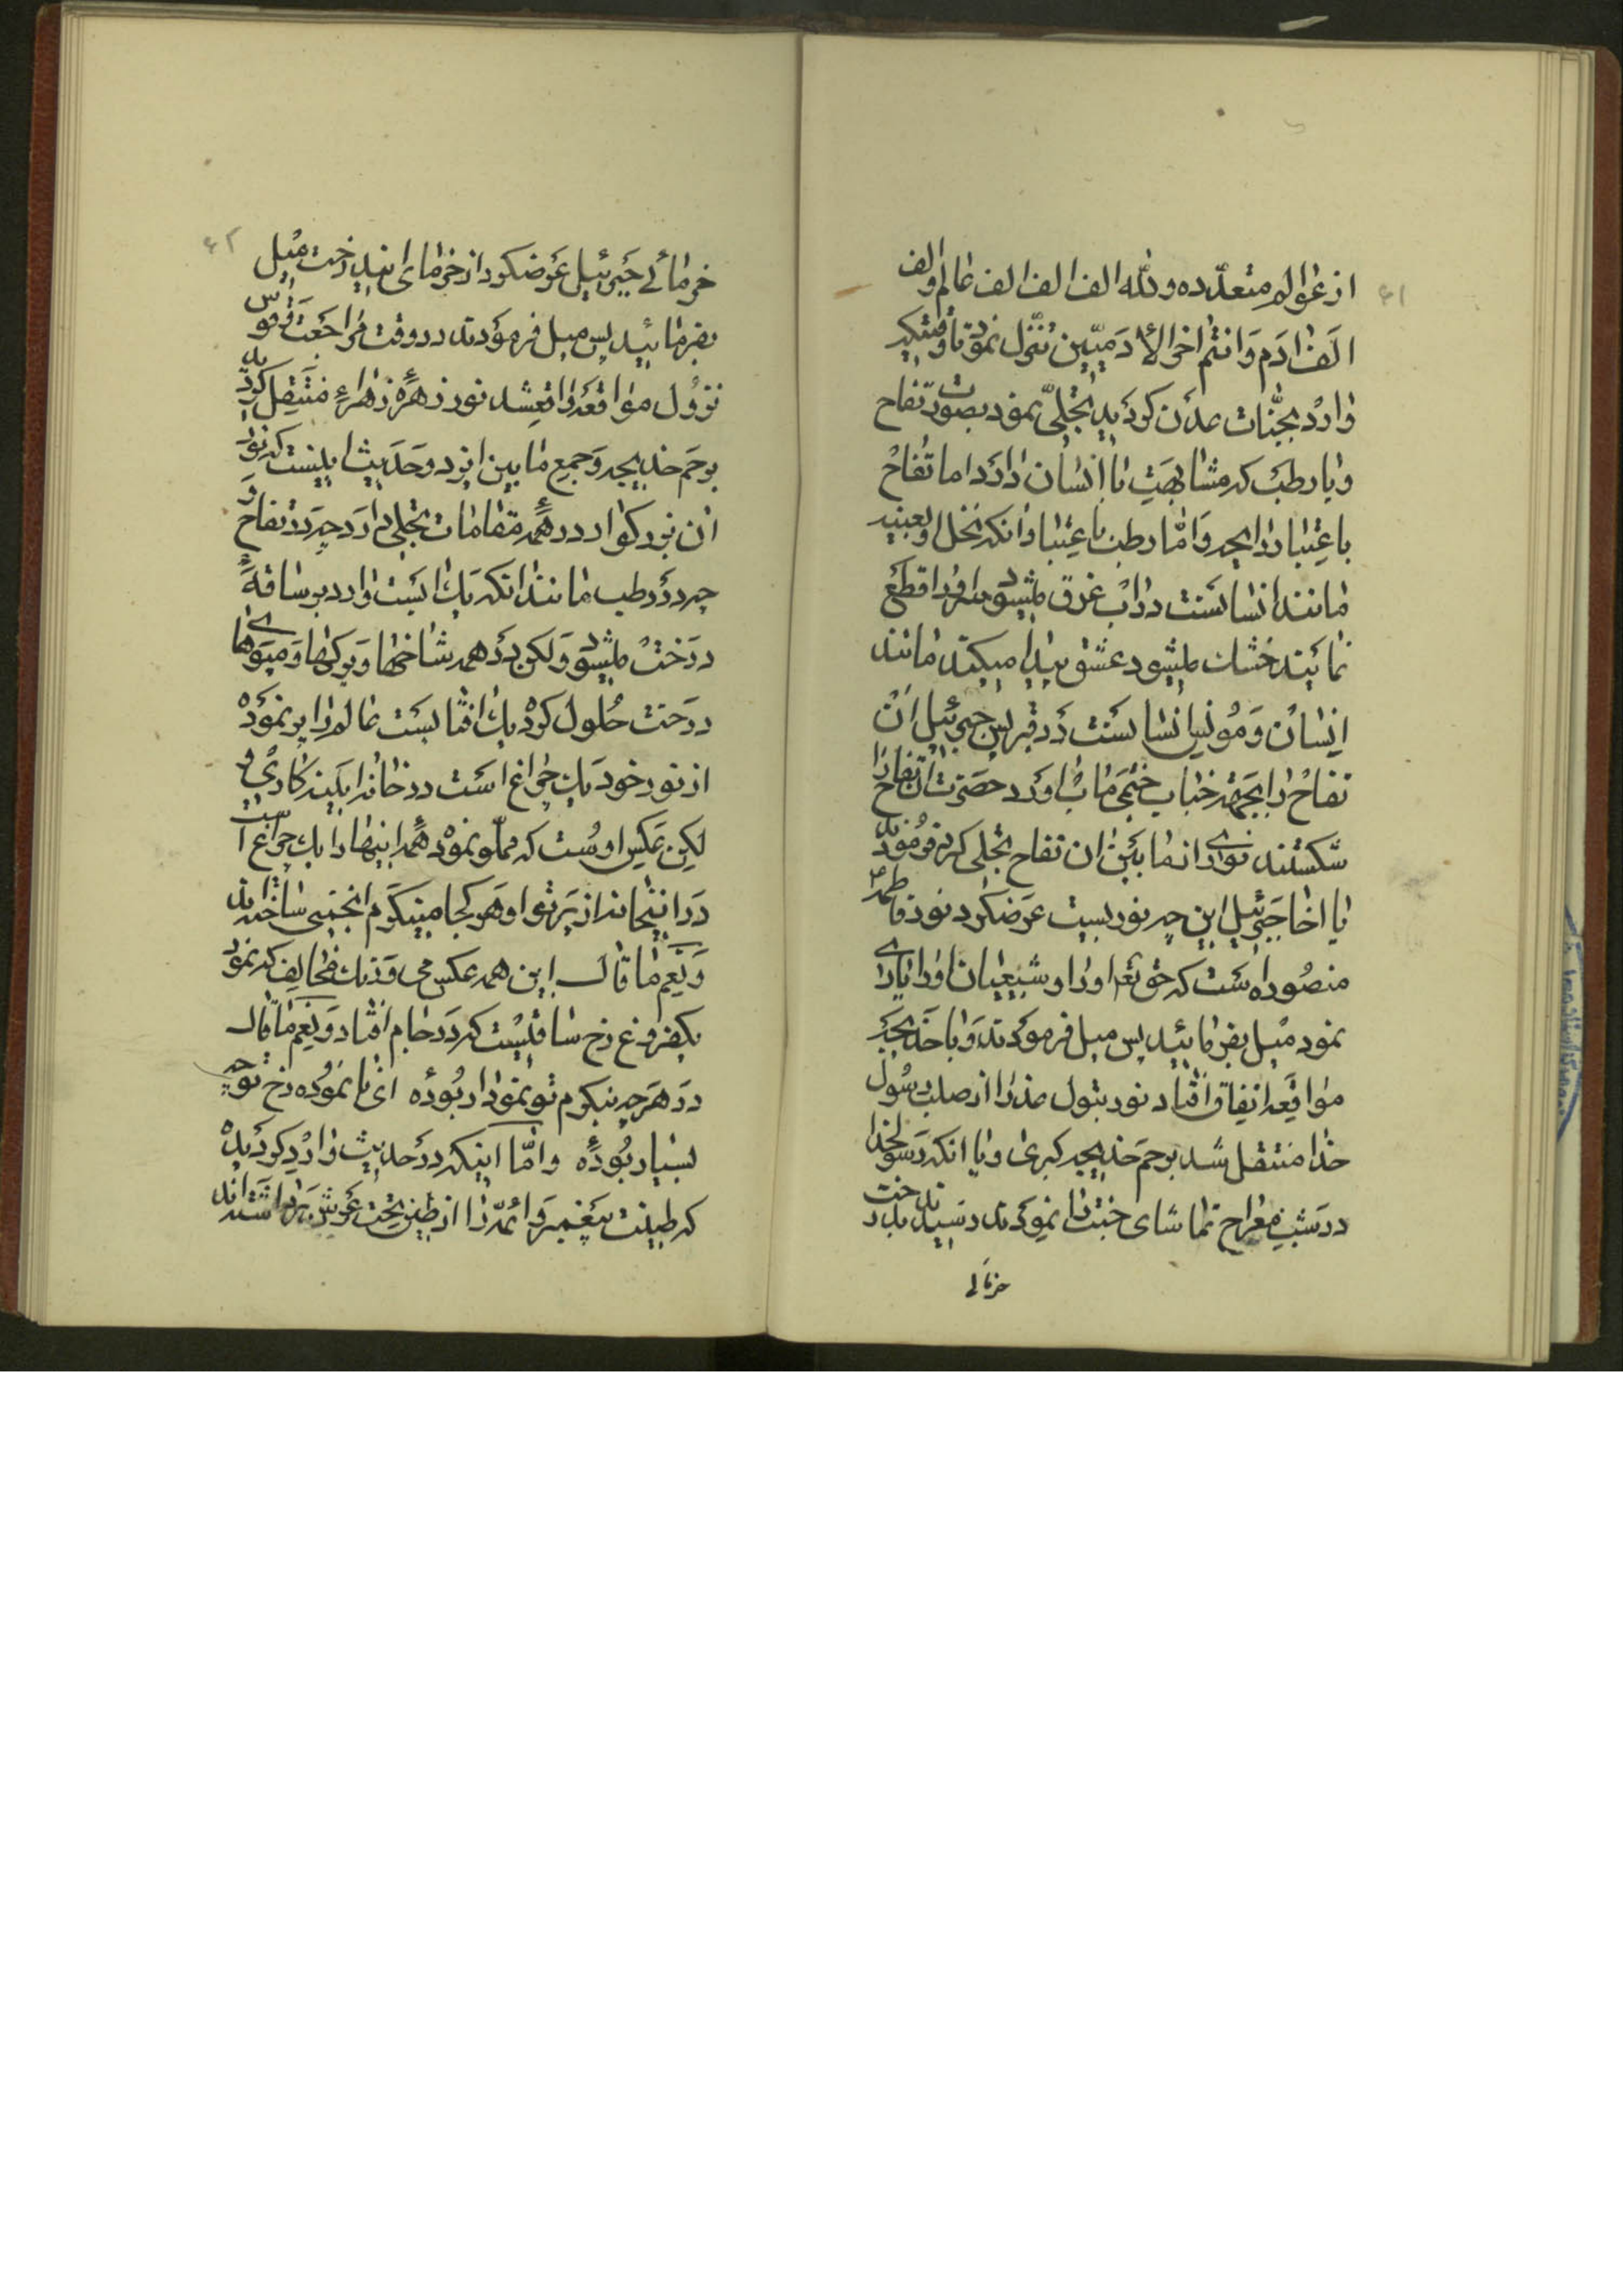 ۶۱
از عوالم متعدّده ولله الف الف الف عالم والف
الف ادم وانتم اخر الادمیّین تنزّل نمود تا وقتیکه
وارد بجنّات عدن کردید تجلّی نمود بصورت تفاح
ویا رطب که مشابهت با انسان دارد اما تفاح
باعتبار رایحه وامّا رطب باعتبار انکه نخل
مانند انسانست در اب غرق میشود سر اورا قطع
نمایند خشک میشود عشق پیدا میکند مانند
انسان ومونس انسانست در قبر پس جبرئیل ان
تفاح را بجهة جناب ختمی ماب اورد حضرت ان تفاح را
شکستند نوری از مابین ان تفاح تجلی کرد فرمودند
یا اخا جبرئیل این چه نوریست عرضکرد نور فاطمه
منصوره است که حق تعا اورا وشیعیان اورا یاری
نمود میل بفرمائید پس میل فرمودند وبا خدیجه
مواقعه اتفاق افتاد نور بتول عذرا از صلب رسول
خدا منتقل شد برحم خدیجه کبری ویا انکه رسولخدا
در شب معراج تماشای جنت را نمودند رسیدند بدرخت
خرمائی
۶۲
خرمائی جبرئیل عرضکرد از خرمای ایندرخت میل
بفرمائید پس میل فرمودند در وقت مراجعت وقوس
نزول مواقعه واقعشد نور زهره زهراء منتقل کردید
برحم خدیجه وجمع مابین ایندو حدیث اینست که نور
ان بزرکوار در همه مقامات تجلی دارد چه در تفاح و
چه در رطب مانند انکه یک ابست وارد بر ساقه
درخت میشود ولکن در همه شاخها وبرکها ومیوهای
درخت حلول کرد یک افتابست عالم را پر نموده
از نور خود یک چراغ است در خانه ایینه کاری و
لیکن عکس اوست که مملو نموده همه اینها را یک چراغ است
در اینخانه از پرتو او هر کجا مینکرم انجمنی ساخته اند
ونعم ما قال این همه عکس می ورنک مخالف که نمود
یکفروغ رخ ساقیست که در جام افتاد ونعم ما قال
در هر چه بنکرم تو نمودار بوده ای نا نموده رخ تو چه
بسیار بوده وامّا اینکه در حدیث وارد کردیده
که طینت پیغمبر وائمّه را از طین تحت عرش برداشته اند